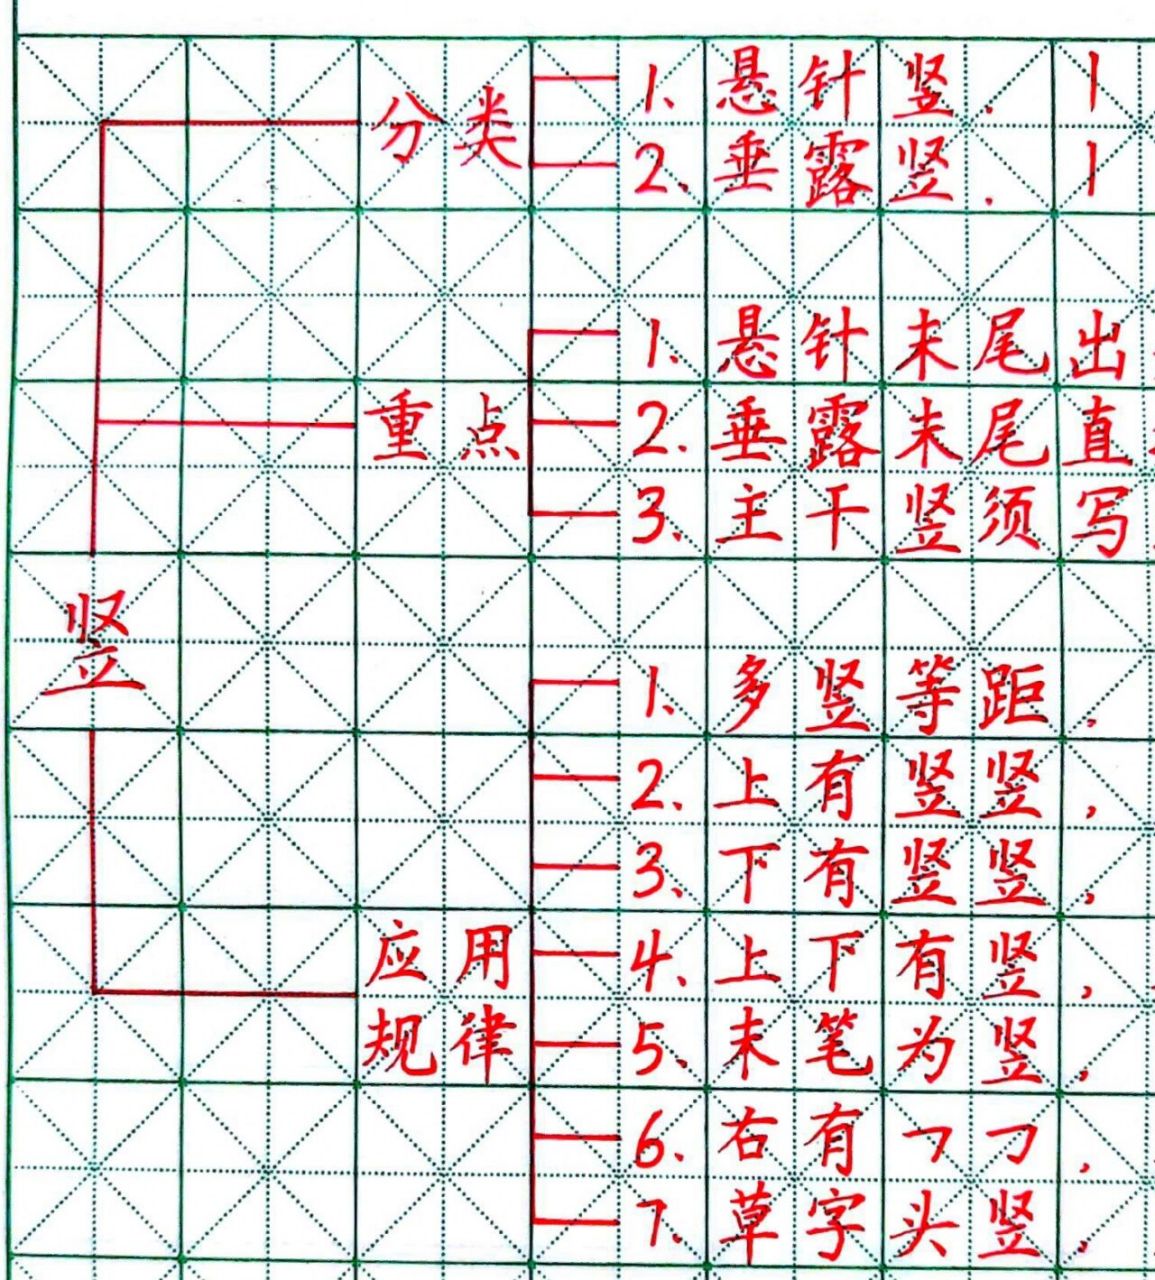 分类
1. 悬针竖. 丨
2. 垂露竖. 丨
重点
1. 悬针末尾出
2. 垂露末尾直
3. 主干竖须写
竖
1. 多竖等距,
2. 上有竖竖,
3. 下有竖竖,
应用
规律
4. 上下有竖,
5. 末笔为竖,
6. 右有㇆㇆,
7. 草字头竖,